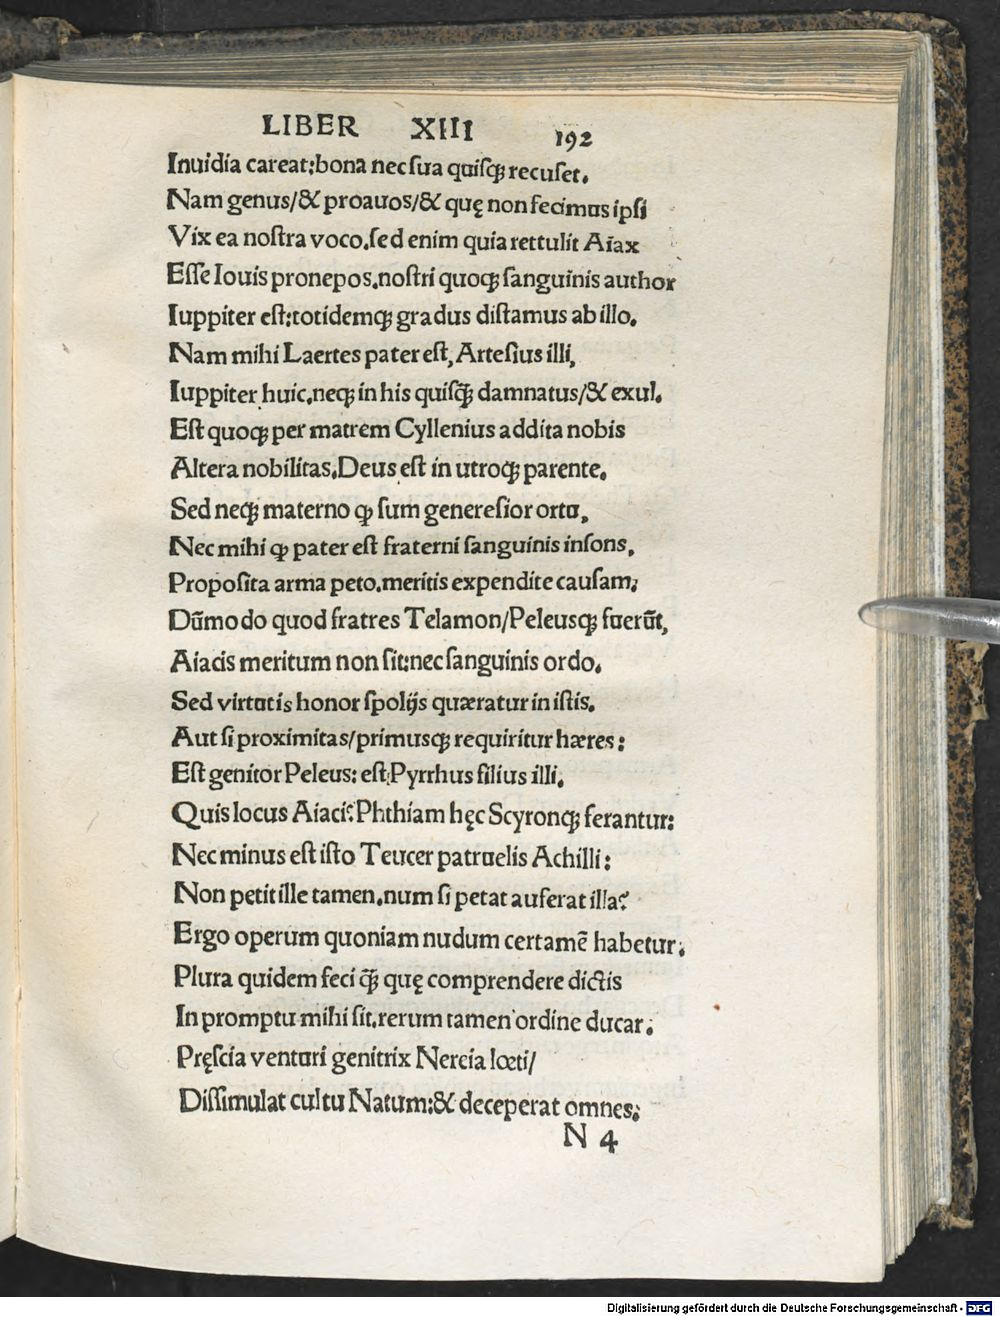 LIBER XIII 192
Inuidia careat:bona nec sua quisq; recuset.
Nam genus/& proauos/& quę non fecimus ipsi
Vix ea nostra voco.sed enim quia rettulit Aiax
Esse Iouis pronepos.nostri quoq; sanguinis author
Iuppiter est:totidemq; gradus distamus ab illo.
Nam mihi Laertes pater est, Artesius illi,
Iuppiter huic.neq; in his quisq̃ damnatus/& exul.
Est quoq; per matrem Cyllenius addita nobis
Altera nobilitas.Deus est in utroq; parente.
Sed neq; materno ꝙ sum generesior ortu,
Nec mihi ꝙ pater est fraterni sanguinis insons,
Proposita arma peto.meritis expendite causam;
Dũmodo quod fratres Telamon/Peleusq; fuerũt,
Aiacis meritum non sit:nec sanguinis ordo.
Sed virtutis honor spolijs quæratur in istis.
Aut si proximitas/primusq; requiritur hæres:
Est genitor Peleus: est Pyrrhus filius illi.
Quis locus Aiaci? Phthiam hęc Scyronq; ferantur:
Nec minus est isto Teucer patruelis Achilli:
Non petit ille tamen.num si petat auferat illa?
Ergo operum quoniam nudum certamẽ habetur.
Plura quidem feci q̃ quę comprendere dictis
In promptu mihi sit.rerum tamen ordine ducar.
Pręscia venturi genitrix Nereia lœti/
Dissimulat cultu Natum:& deceperat omnes;
N 4
Digitalisierung gefördert durch die Deutsche Forschungsgemeinschaft - DFG